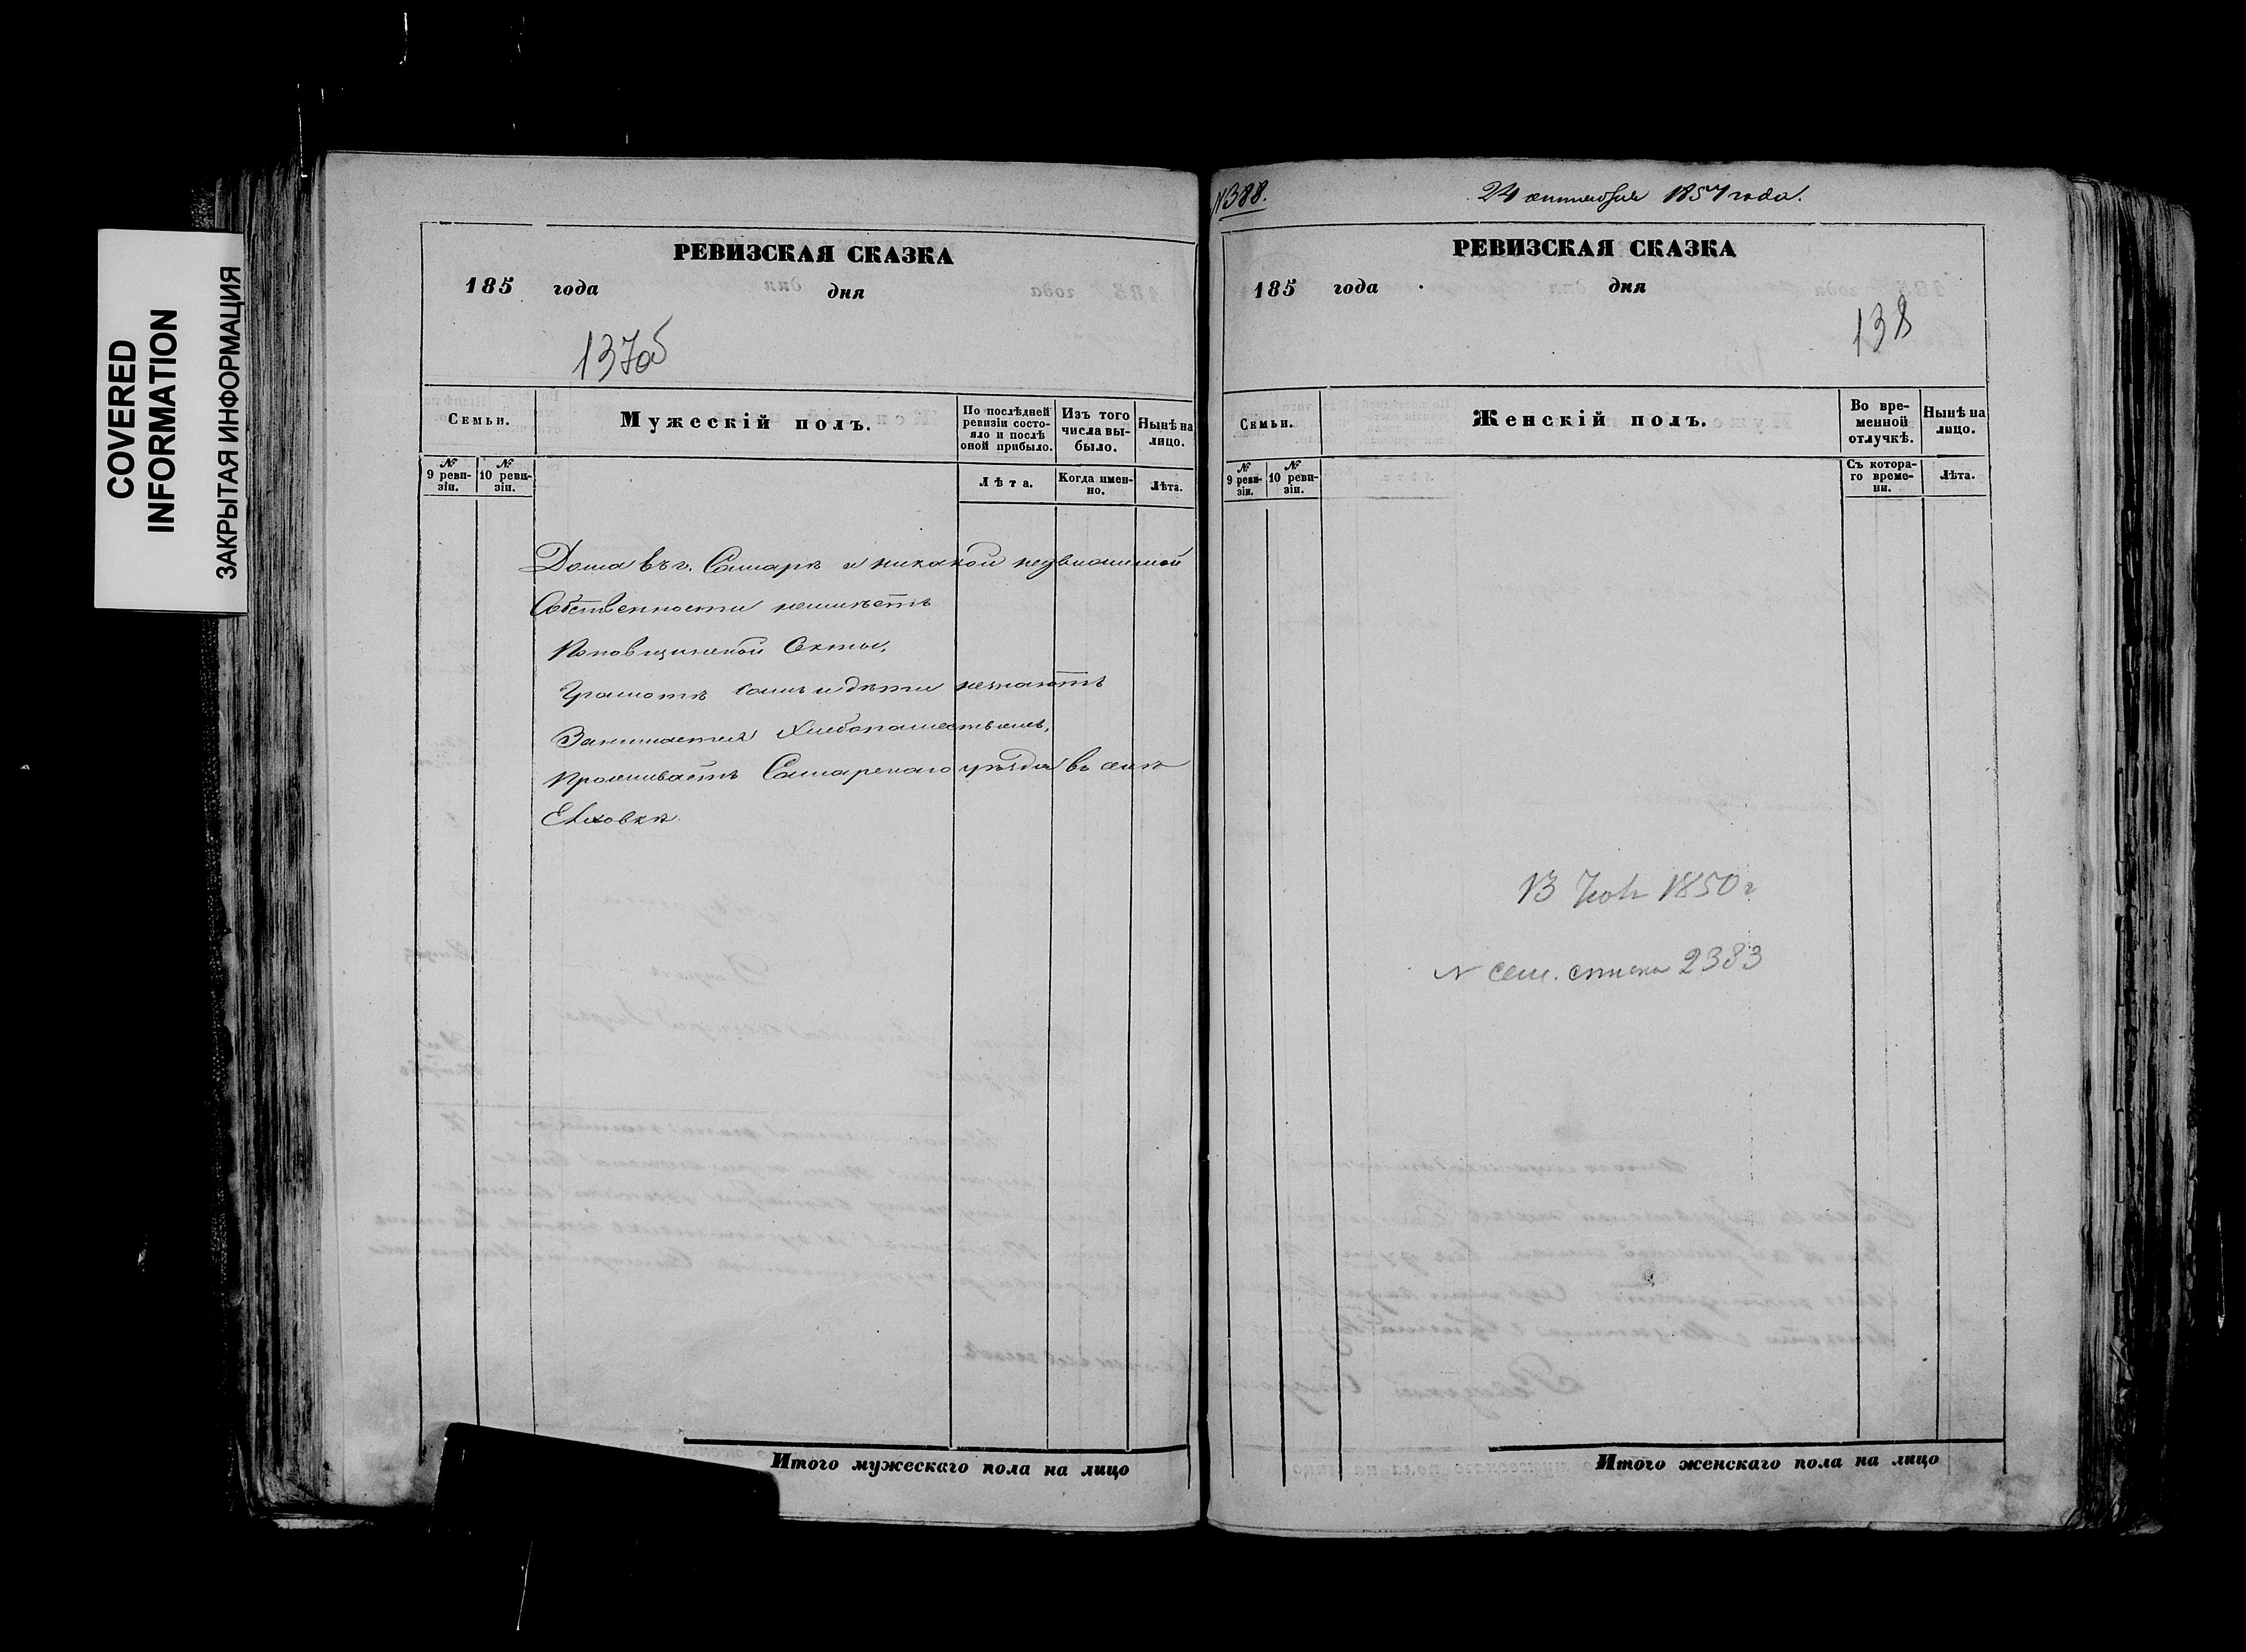 COVERED
INFORMATION
ЗАКРЫТАЯ ИНФОРМАЦИЯ
РЕВИЗСКАЯ СКАЗКА
185 года дня
137об
Семьи.
Мужескій полъ.
По послѣдней ревизіи состояло и послѣ оной прибыло.
Изъ того числа выбыло.
Нынѣ на лицо.
№ 9 ревизіи.
№ 10 ревизіи.
Лѣта.
Когда именно.
Лѣта.
Дома въ г. Самарѣ и никакой недвижимой
Собственности неимѣетъ
Поповщинской Секты,
Грамотѣ самъ и дѣти незнаютъ
Занимается Хлебопашествомъ,
Проживаетъ Самарскаго уѣзда въ селѣ
Елховкѣ.
Итого мужескаго пола на лицо
№388.
24 сентября 1857 года.
РЕВИЗСКАЯ СКАЗКА
185 года дня
138
Семьи.
Женскій полъ.
Во временной отлучкѣ.
Нынѣ на лицо.
№ 9 ревизіи.
№ 10 ревизіи.
Съ котораго времени.
Лѣта.
13 1850 г
N сем. списка 2383
Итого женскаго пола на лицо